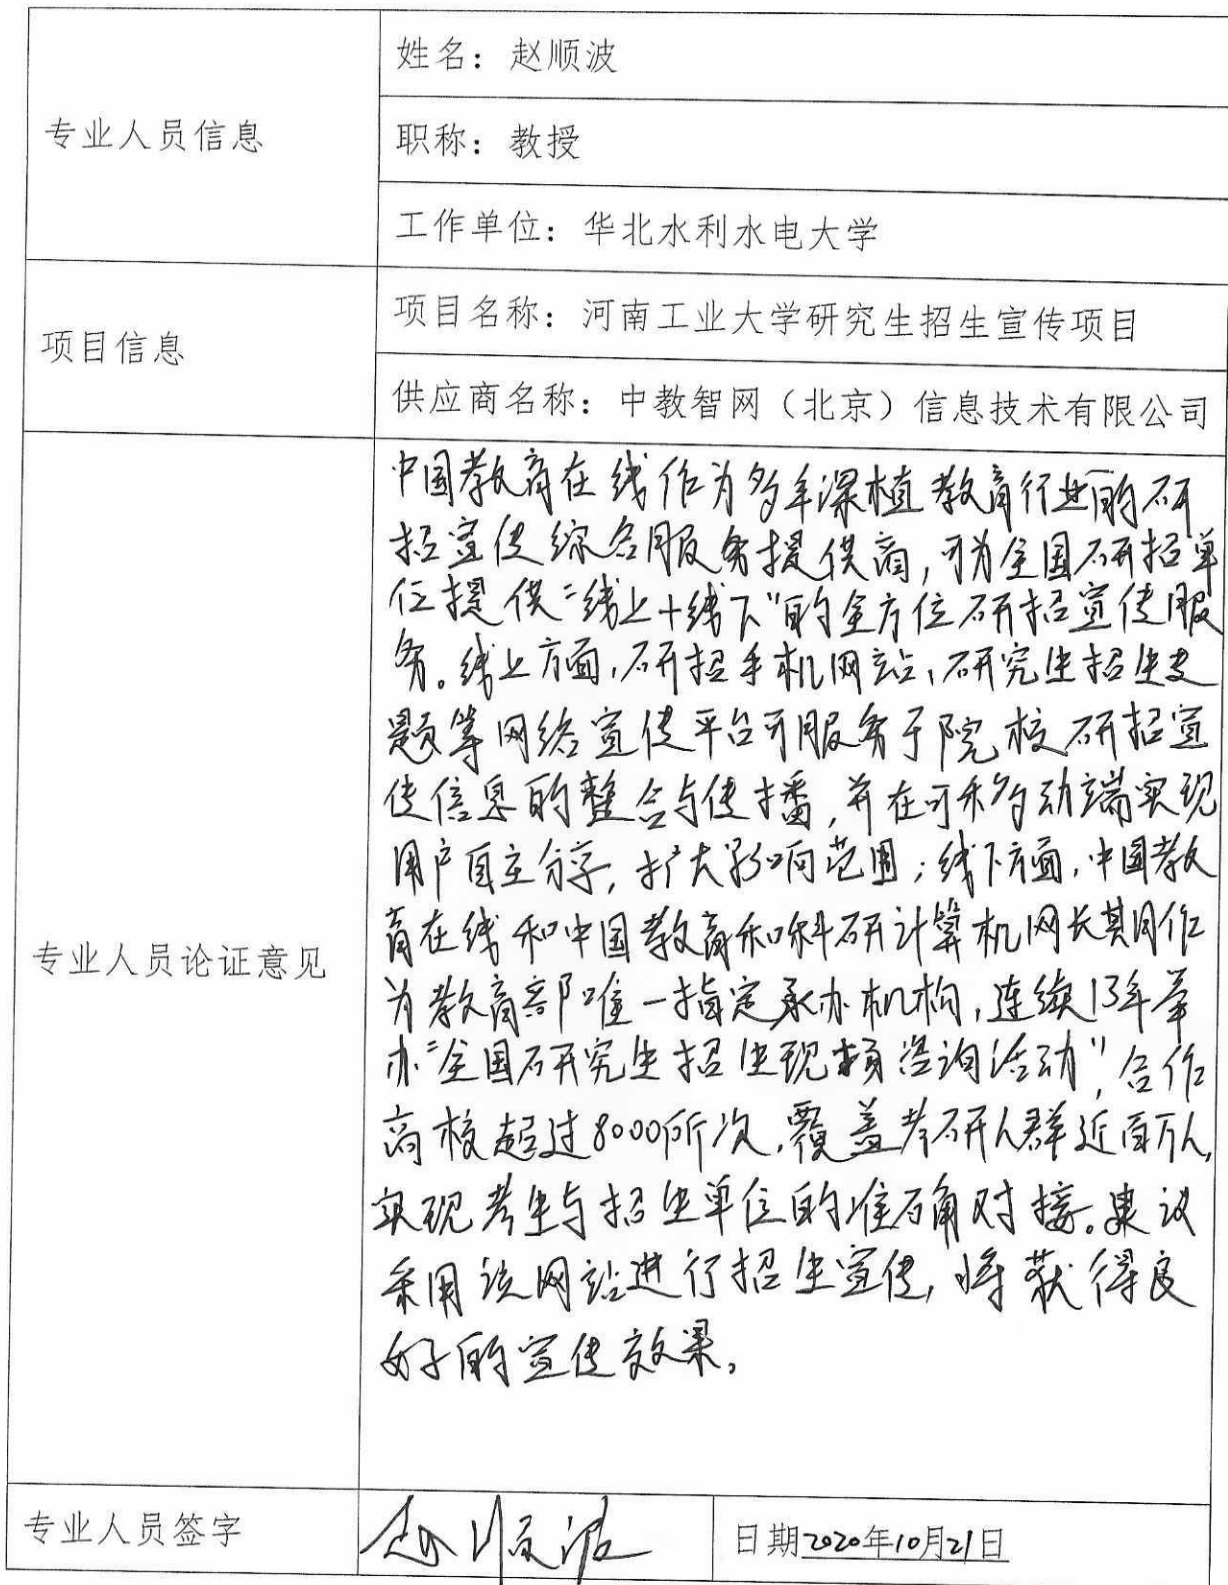 专业人员信息
姓名：赵顺波
职称：教授
工作单位：华北水利水电大学
项目信息
项目名称：河南工业大学研究生招生宣传项目
供应商名称：中教智网（北京）信息技术有限公司
专业人员论证意见
中国教育在线作为多年深植教育行业的研
招宣传综合服务提供商，可为全国研招单
位提供“线上+线下”的全方位研招宣传服
务。线上方面，研招手机网站，研究生招生专
题等网络宣传平台可服务于院校研招宣
传信息的整合与传播，并在可移动端实现
用户自主分享，扩大影响范围；线下方面，中国教
育在线和中国教育和科研计算机网长期作
为教育部唯一指定承办机构，连续13年举
办“全国研究生招生现场咨询活动”，合作
高校超过8000所次，覆盖考研人群近百万人，
实现考生与招生单位的准确对接。建议
采用该网站进行招生宣传，将获得良
好的宣传效果。
专业人员签字
赵顺波
日期2020年10月21日